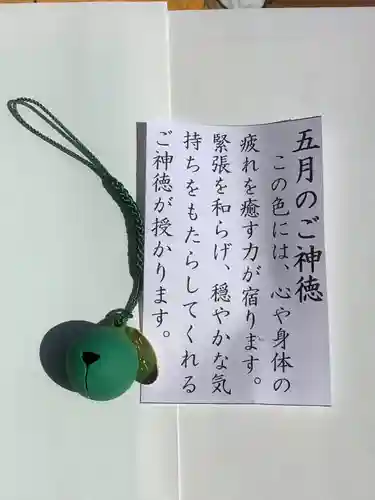 五月のご神徳
この色には、心や身体の
疲れを癒す力が宿ります。
緊張を和らげ、穏やかな気
持ちをもたらしてくれる
ご神徳が授かります。